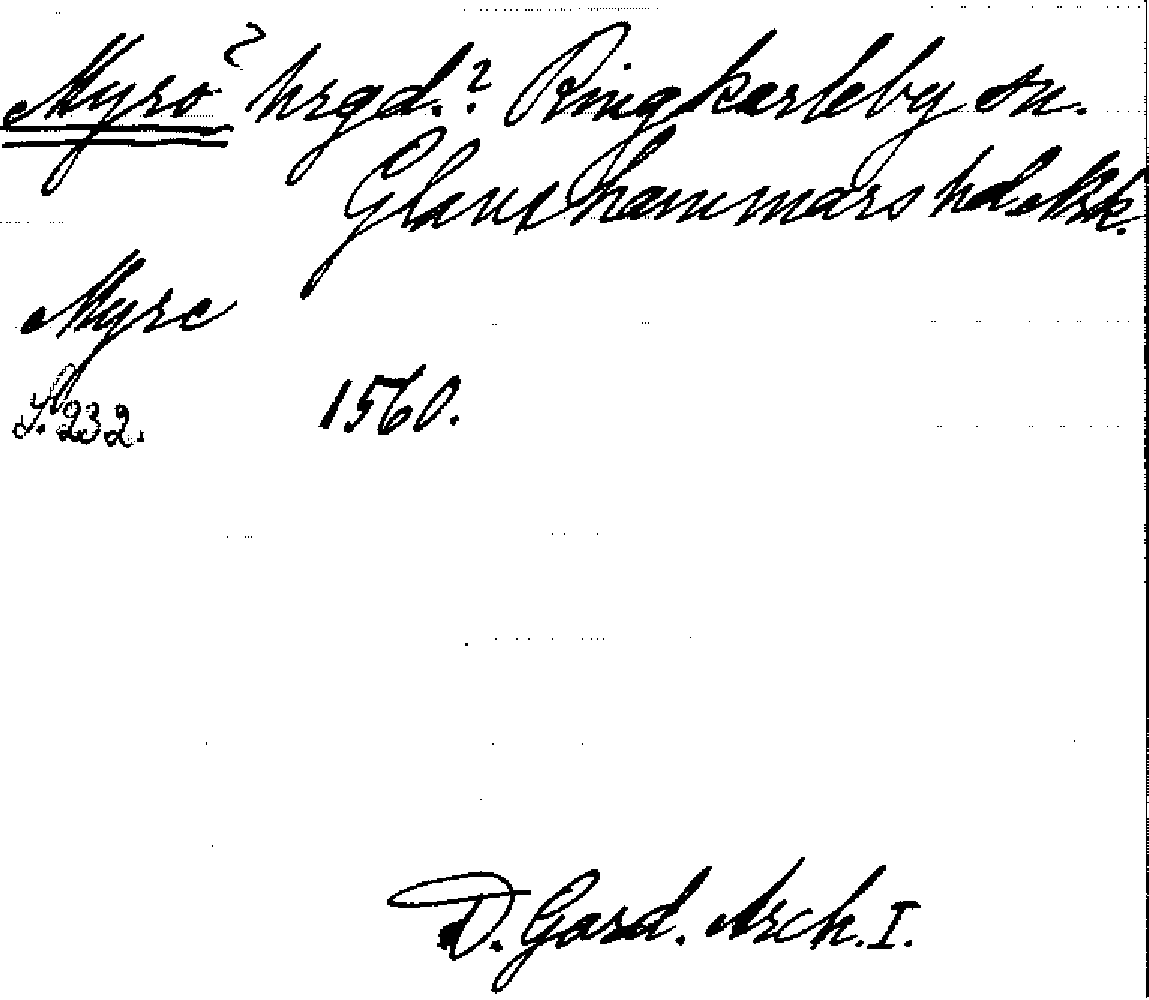 Myrö? hrgd.? Ringkarleby sn.
Glanshammars hd. Nrk.
Myre
S. 232. 1560.
D. Gard. Arch. I.